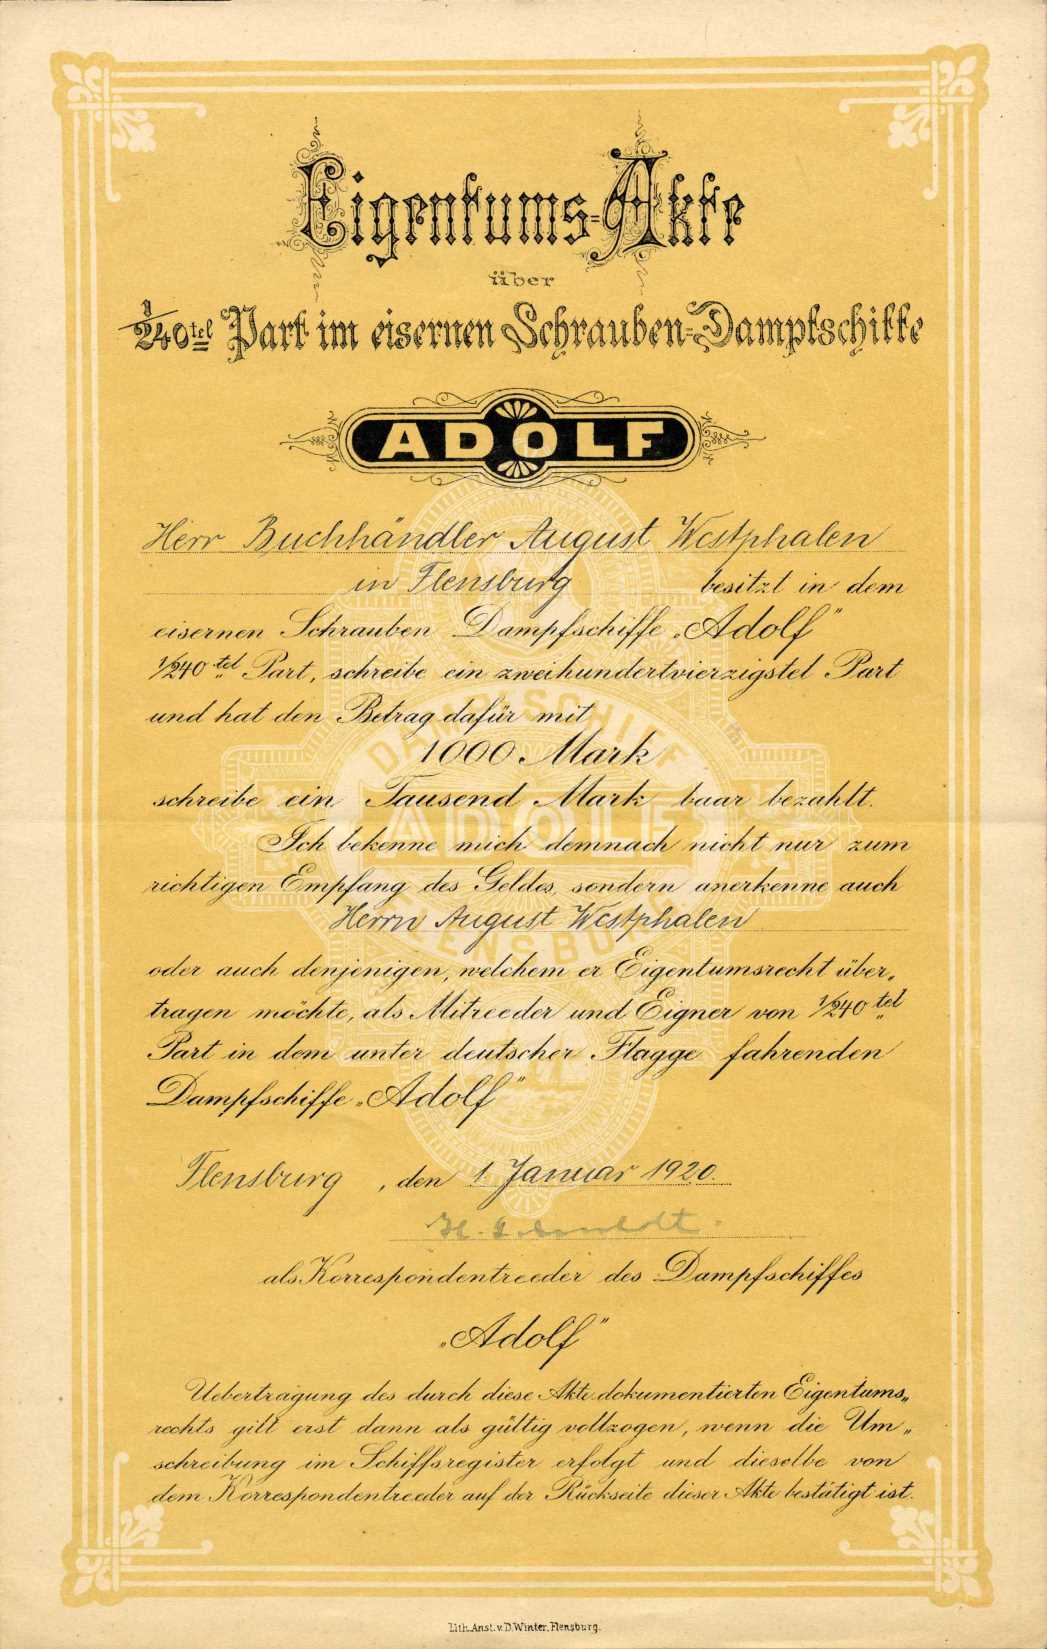 Eigentums-Akte
über
1/240tel Part im eisernen Schrauben-Dampfschiffe
ADOLF
Herr Buchhändler August Westphalen
in Flensburg besitzt in dem
eisernen Schrauben Dampfschiffe „Adolf“
1/240 tel Part, schreibe ein zweihundertvierzigstel Part
und hat den Betrag dafür mit
1000 Mark
schreibe ein Tausend Mark baar bezahlt.
Ich bekenne mich demnach nicht nur zum
richtigen Empfang des Geldes, sondern anerkenne auch
Herrn August Westphalen
oder auch denjenigen, welchem er Eigentumsrecht über„
tragen möchte, als Mitreeder und Eigner von 1/240 tel
Part in dem unter deutscher Flagge fahrenden
Dampfschiffe „Adolf“
DAMPFSCHIFF
ADOLF
FLENSBURG
Flensburg, den 1. Januar 1920.
H.
als Korrespondentreeder des Dampfschiffes
„Adolf“
Uebertragung des durch diese Akte dokumentierten Eigentums„
rechts gilt erst dann als gültig vollzogen, wenn die Um„
schreibung im Schiffsregister erfolgt und dieselbe von
dem Korrespondentreeder auf der Rückseite dieser Akte bestätigt ist.
Lith. Anst. v. D. Winter, Flensburg.